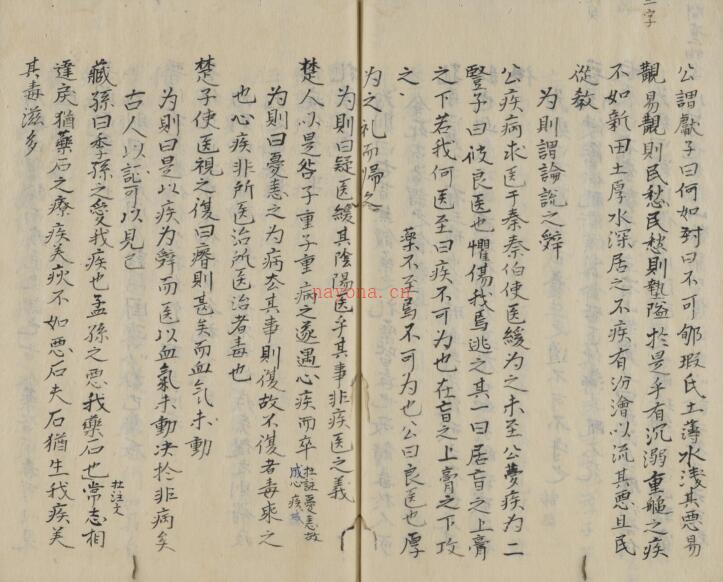 公謂獻子曰何如對曰不可郇瑕氏土薄水淺其惡易
觀易觀則民愁民愁則墊隘於是乎有沉溺重膇之疾
不如新田土厚水深居之不疾有汾澮以流其惡且民
從教
為則謂論說之辭
公疾病求医于秦秦伯使医緩為之未至公夢疾為二
豎子曰彼良医也懼傷我焉逃之其一曰居肓之上膏
之下若我何医至曰疾不可為也在肓之上膏之下攻
之
藥不至焉不可為也公曰良医也厚
為之礼而帰之
為則曰疑医緩其陰陽医乎其事非疾医之義
楚人以是咎子重子重病之遂遇心疾而卒
杜註憂恚故
成心疾
為則曰憂恚之為病玄其事則復故不復者毒乘之
也心疾非所医治所医治者毒也
楚子使医視之復曰瘠則甚矣而血气未動
為則曰是以疾為辭而医以血氣未動决於非病矣
古人以証可以見已
臧孫曰季孫之愛我疾也孟孫之惡我藥石也常志相
杜注文
違戾猶藥石之療疾美疢不如惡石夫石猶生我疾美
其毒滋多
二字
nayona.cn